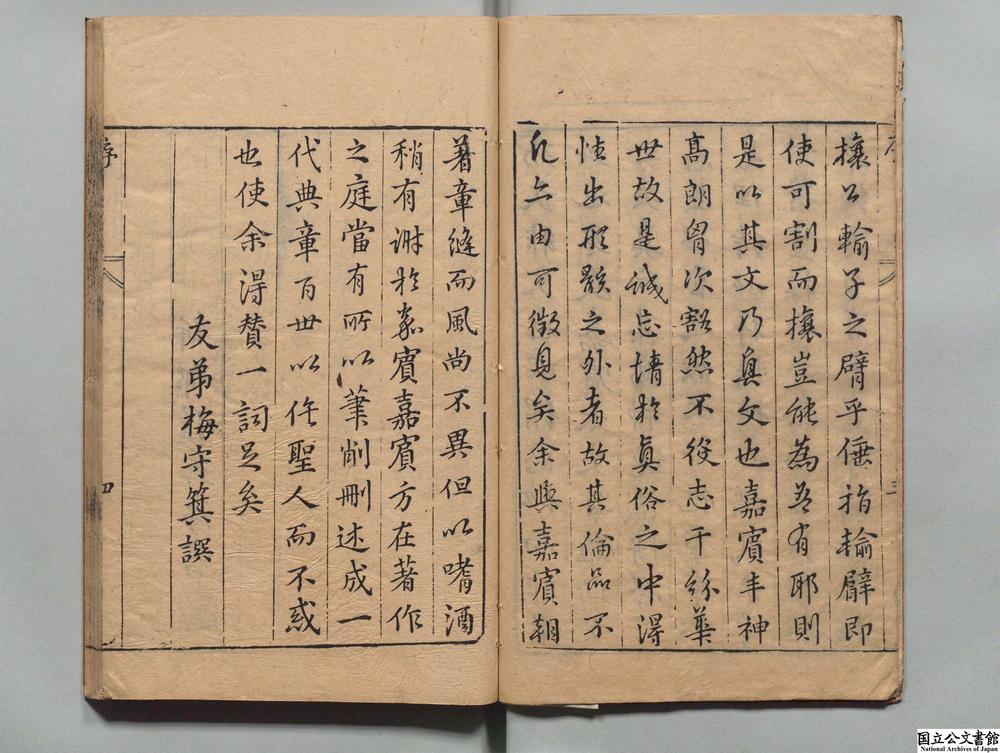 攘公輸子之臂乎倕指輸臂即
使可割而攘豈能為吾有耶則
是以其文乃眞文也嘉賓丰神
髙朗胷次豁然不役志于紛華
世故是誠忘情於眞俗之中得
恠出形骸之外者故其倫品不
凡亦由可徴見矣余與嘉賓朝
著章縫而風尚不異但以嗜酒
稍有谢於嘉賓嘉賓方在著作
之庭當有所以筆削刪述成一
代典章百世以俟聖人而不惑
也使余得賛一詞足矣
友弟梅守箕譔
序
四
三
国立公文書館
National Archives of Japan